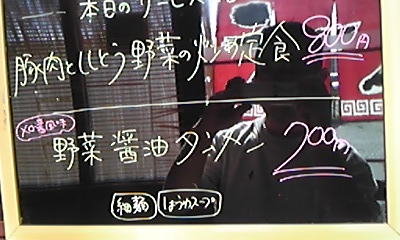 本日のサービス
豚肉とししとう野菜の炒め定食 800円
野菜醤油タンメン 700円
細麺 しょうゆスープ